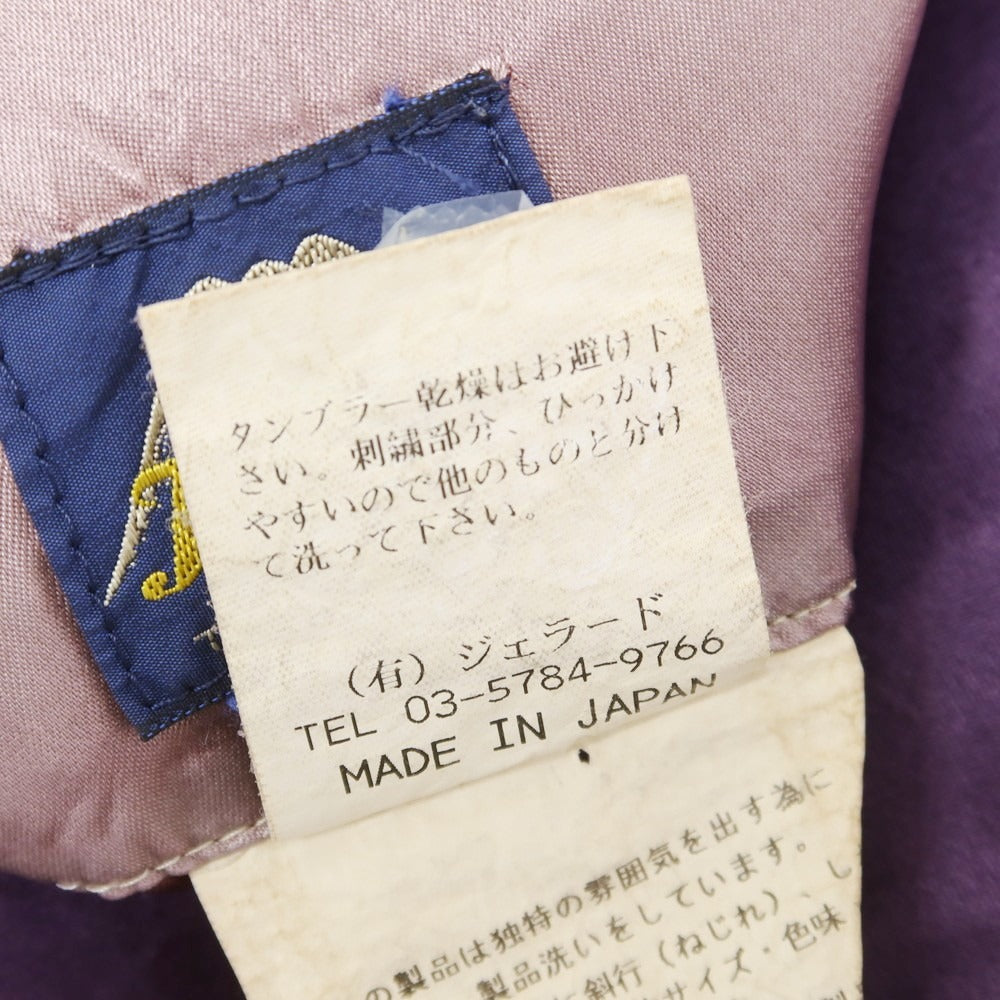 タンブラー乾燥はお避け下
さい。刺繍部分、ひっかけ
やすいので他のものと分け
て洗って下さい。
（有）ジェラード
TEL 03-5784-9766
MADE IN JAPAN
の製品は独特の雰囲気を出す為に
製品洗いをしています。
斜行（ねじれ）、し
サイズ・色味